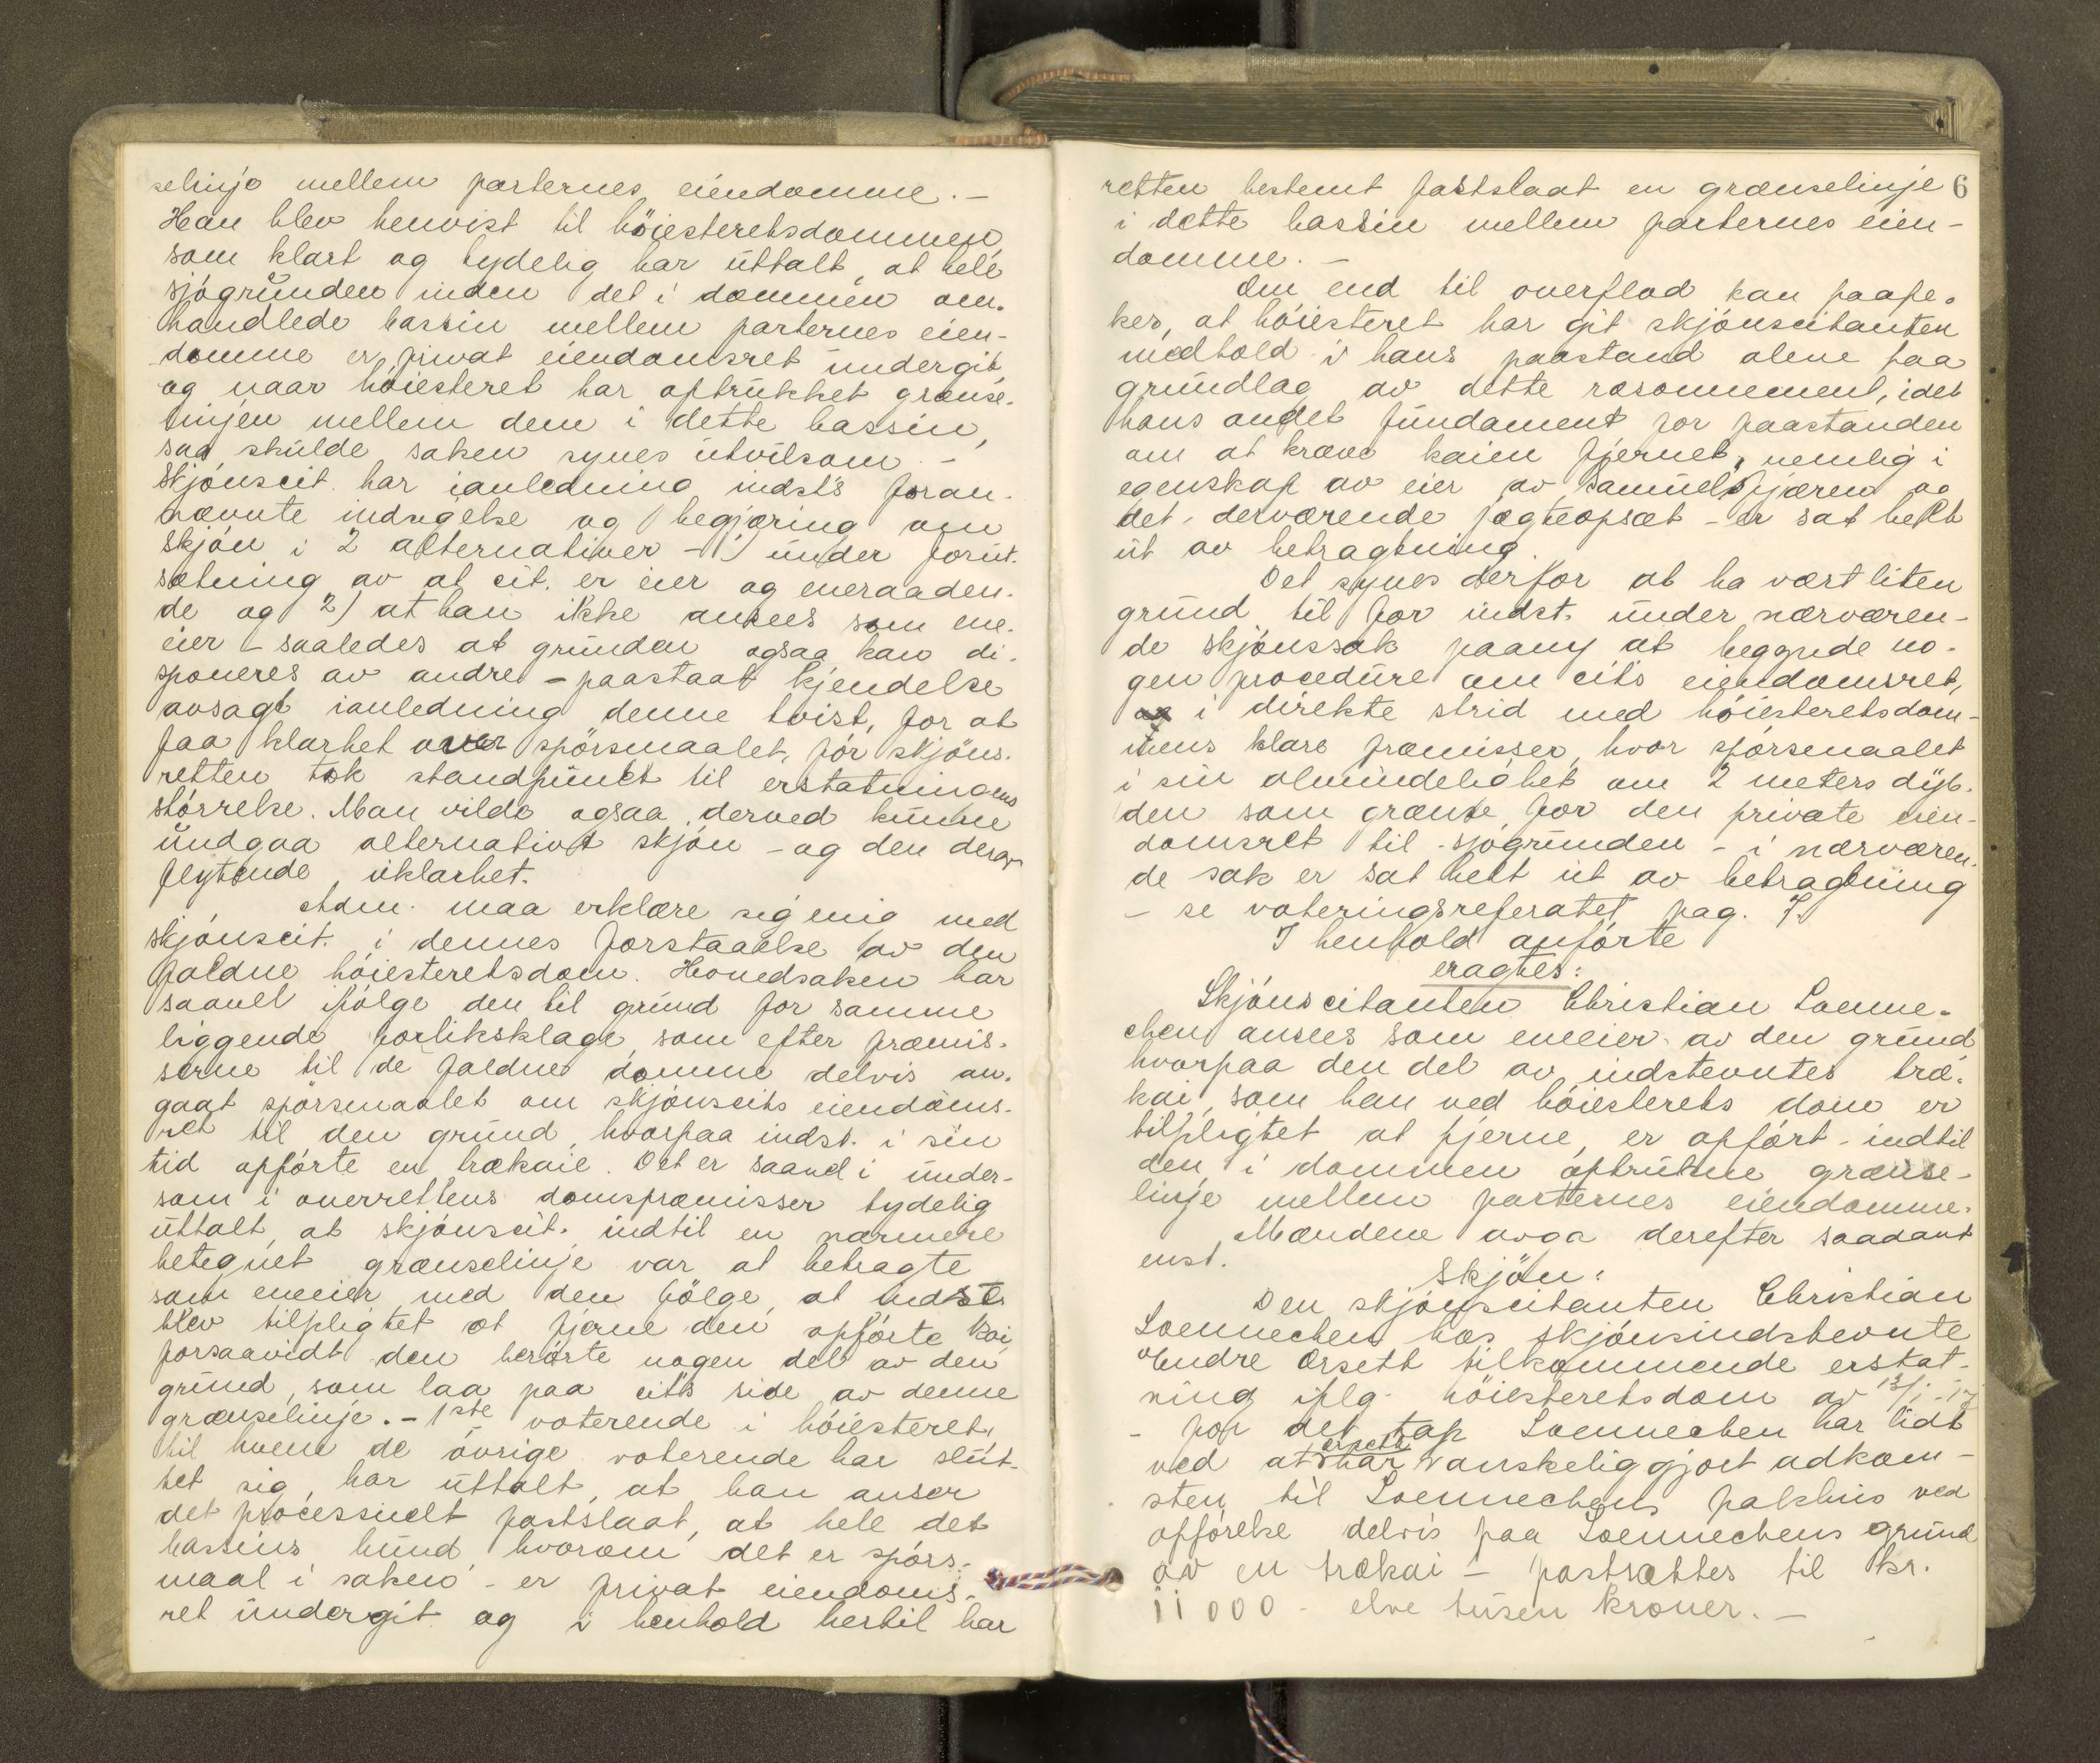 selinje mellem parternes eiendomme. -
Han blev henvist til höiesteretsdommen,
som klart og tydelig har uttalt, at hele
sjögrunden inden det i dommen om-
handlede bassin mellem parternes eien-
domme er privat eiendomsret undergit
og naar höiesteret har optrukket grænse-
linjen mellem dem i dette bassin,
saa skulde saken synes utvilsom. -
Skjönscit. har ianledning indst's foran-
nævnte indsigelse og begjæring om
skjön i 2 alternativer - 1) under forut-
sætning av at cit. er eier og eneraaden-
de og 2) at han ikke ansees som ene-
eier - saaledes at grunden ogsaa kan di-
sponeres av andre - paastaat kjendelse
avsagt ianledning denne tvist, for at
faa klarhet over spörsmaalet, för skjöns-
retten tok standpunkt til erstatningens
störrelse. Man vilde ogsaa derved kunne
undgaa alternativt skjön - og den derav
flytende uklarhet.
Adm. maa erklære sig enig med
skjönscit. i dennes forstaaelse av den
faldne höiesteretsdom. Hovedsaken har
saavel ifölge den til grund for samme
liggende forliksklage, som efter præmis-
serne til de faldne domme delvis an-
gaat spörsmaalet om skjönscits eiendoms-
ret til den grund, hvorpaa indst. i sin
tid opförte en trækaie. Det er saavel i under-
som i overrettens domspræmisser tydelig
uttalt, at skjönscit. indtil en nærmere
betegnet grænselinje var at betragte
som eneeier med den fölge, at indst.
blev tilpligtet at fjerne den opförte kai,
forsaavidt den berörte nogen del av den
grund, som laa paa cit's side av denne
grænselinje. - 1ste voterende i höiesteret,
til hvem de övrige voterende har slut-
tet sig, har uttalt, at han anser
det processuelt fastslaat, at hele det
bassins bund, hvorom det er spörs-
maal i saken - er privat eiendoms-
ret undergit og i henhold hertil har
retten bestemt fastslaat en grænselinje 6
i dette bassin mellem parternes eien-
domme. -
Om end til overflod kan paape-
kes, at höiesteret har git skjönscitanten
medhold i hans paastand alene paa
grundlag av dette ræsonnement, idet
hans andet fundament for paastanden
om at kræve kaien fjernet, nemlig i
egenskap av eier av Samuelsfjæren og
det derværende jægteopsæt - er sat helt
ut av betragtning.
Det synes derfor at ha vært liten
grund til for indst. under nærværen-
de skjönssak paany at begynde no-
gen procedure om cit's eiendomsret,
i direkte strid med höiesteretsdom-
mens klare præmisser, hvor spörsmaalet
i sin almindelighet om 2 meters dyb-
den som grænse for den private eien-
domsret til sjögrunden - i nærværen-
de sak er sat helt ut av betragtning
- se voteringsreferatet pag. 7.
I henhold anförte
eragtes:
Skjönscitanten Christian Loenne-
chen ansees som eneeier av den grund
hvorpaa den del av indstevntes træ-
kai, som han ved höiesterets dom er
tilpligtet at fjerne, er opfört - indtil
den i dommen optrukne grænse-
linje mellem parternes eiendomme.
Mændene avga derefter saadant
enst.
Skjön:
Den skjönscitanten Christian
Loennechen hos skjönsindstevnte
Endre Orsett tilkommende erstat-
ning iflg. höiesteretsdom av 13/1-17
- for det tap Loennechen har lidt
ved at Orsett har vanskeliggjort adkom-
sten til Loennechens pakhus ved
opförelse delvis paa Loennechens grund
av en trækai - fastsættes til kr.
11000 - elve tusen kroner. -